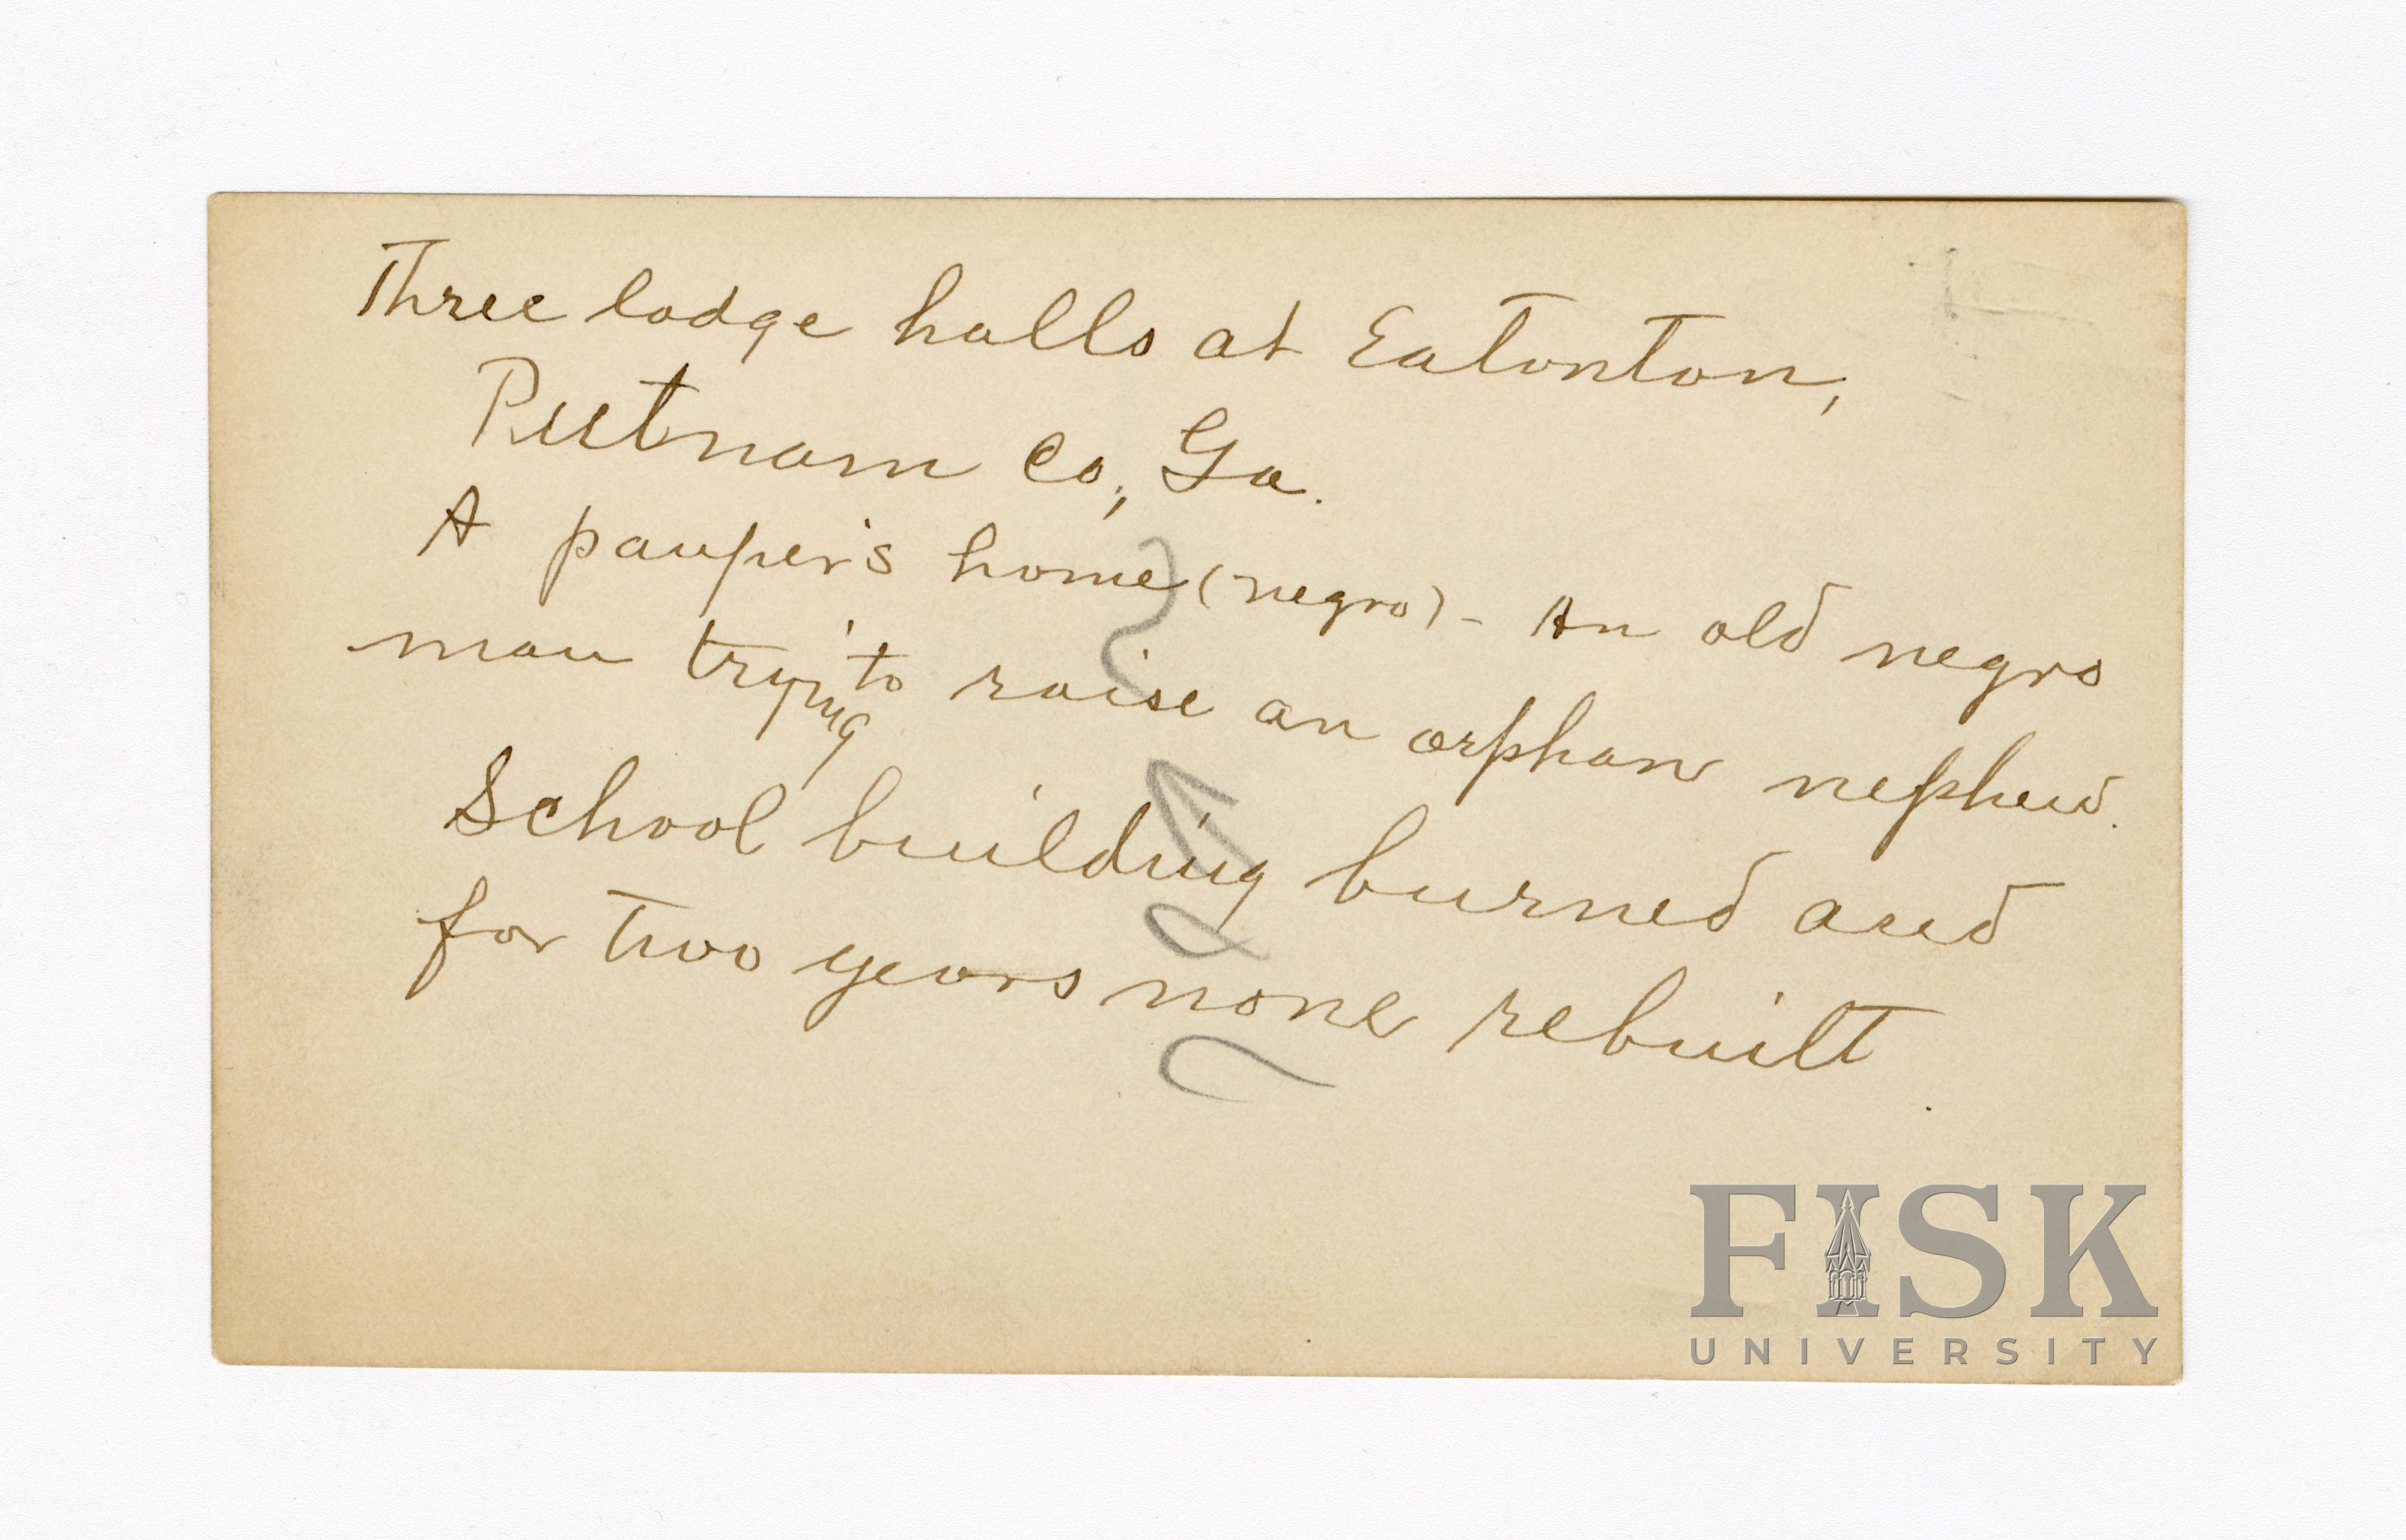 Three lodge halls at Eatonton,
Putnam Co., Ga.
A pauper's home (negro) - An old negro
man trying to raise an orphan nephew.
School building burned and
for two years none rebuilt
FISK
UNIVERSITY